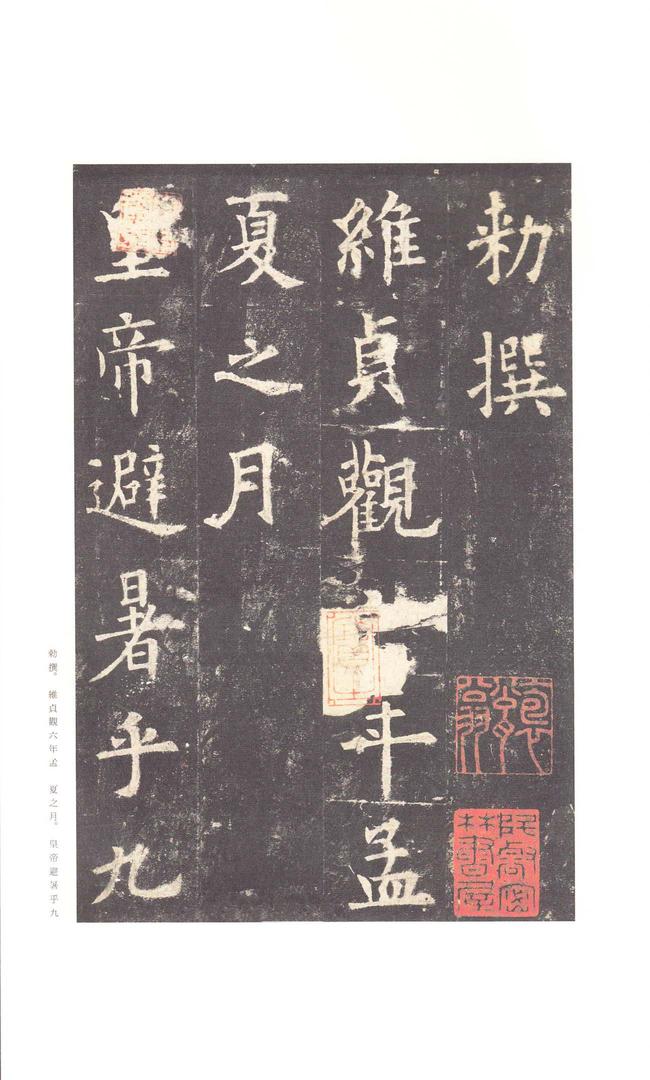 勑撰
維貞觀六年孟
夏之月
皇帝避暑乎九
勑撰。 維貞觀六年孟 夏之月。 皇帝避暑乎九